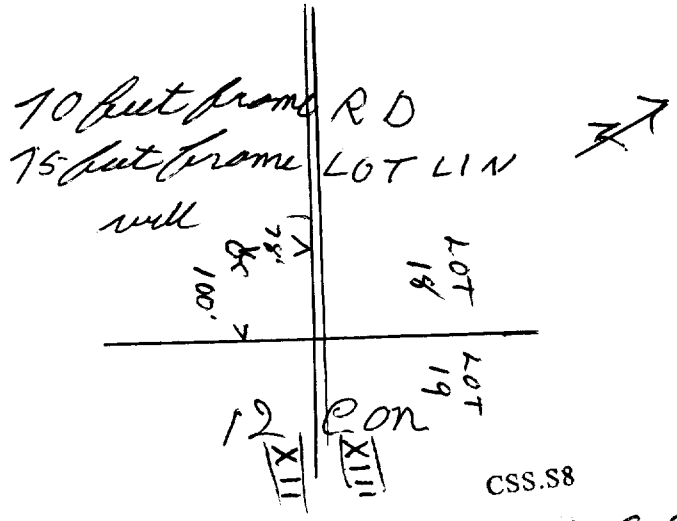 70 feet frome R D
75 feet frome LOT LIN
well
78'
100'
LOT
18
LOT
19
12 Con
XII XIII
CSS.S8